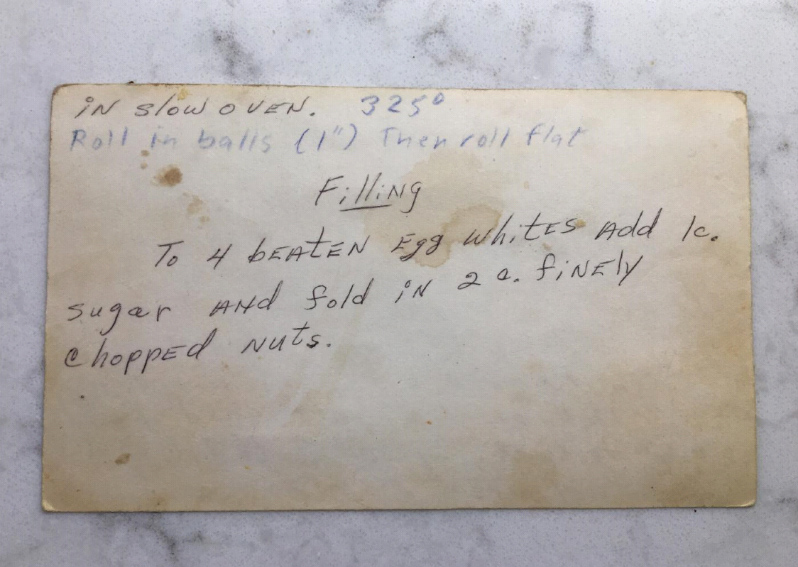 iN slow oVEN. 325°
Roll in balls (1") Then roll flat
FilliNg
To 4 bEAtEN Egg whitEs Add 1c.
sugar ANd fold iN 2 c. fiNEly
choppEd Nuts.